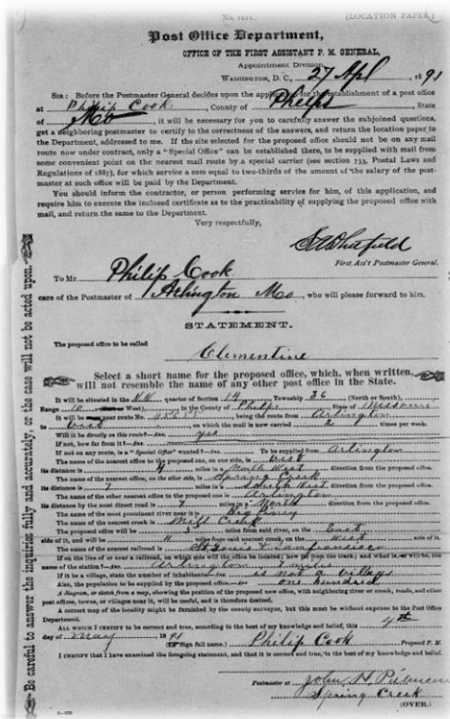 No. 1011.
(LOCATION PAPER)
Post Office Department,
OFFICE OF THE FIRST ASSISTANT P. M. GENERAL,
Appointment Division,
WASHINGTON, D. C., 27 Apl, 1891
SIR: Before the Postmaster General decides upon the application for the establishment of a post office
at Philip Cook, County of Phelps, State
of Mo, it will be necessary for you to carefully answer the subjoined questions,
get a neighboring postmaster to certify to the correctness of the answers, and return the location paper to
the Department, addressed to me. If the site selected for the proposed office should not be on any mail
route now under contract, only a "Special Office" can be established there, to be supplied with mail from
some convenient point on the nearest mail route by a special carrier (see section 733, Postal Laws and
Regulations of 1887), for which service a sum equal to two-thirds of the amount of the salary of the post-
master at such office will be paid by the Department.
You should inform the contractor, or person performing service for him, of this application, and
require him to execute the inclosed certificate as to the practicability of supplying the proposed office with
mail, and return the same to the Department.
Very respectfully,
S A Whitfield
First Ass't Postmaster General.
To Mr Philip Cook
care of the Postmaster of Arlington Mo, who will please forward to him.
STATEMENT.
The proposed office to be called
Clementine
Select a short name for the proposed office, which, when written,
will not resemble the name of any other post office in the State.
It will be situated in the N W quarter of Section 19, Township 36 (North or South),
Range 10 West), in the County of Phelps, State of Missouri
It will be near route No. being the route from Arlington
to, on which the mail is now carried 2 times per week.
Will it be directly on this route?—Ans. yes
If not, how far from it—Ans.
If not on any route, is a "Special Office" wanted?—Ans. To be supplied from Arlington
The name of the office nearest to the proposed one, on one side, is
its distance is 4 miles in a North West direction from the proposed office.
The name of the nearest office, on the other side, is Spring Creek
its distance is 7 miles in a South West direction from the proposed office.
The name of the other nearest office to the proposed one is Arlington
its distance by the most direct road is 7 miles in a direction from the proposed office.
The name of the most prominent river near it is Big Piney
The name of the nearest creek is Mill Creek
The proposed office will be 3 miles from said river, on the East
side of it, and will be miles from said nearest creek, on the West side of it.
The name of the nearest railroad is St Louis & San francisco
If on the line of or near a railroad, on which side will the office be located; how far from the track; and what is, or will be, the
name of the station?—Ans. Arlington, 7 miles
If it be a village, state the number of inhabitants—Ans. is not a village
Also, the population to be supplied by the proposed office—Ans. one hundred
A diagram, or sketch from a map, showing the position of the proposed new office, with neighboring river or creek, roads, and other
post offices, towns, or villages near it, will be useful, and is therefore desired.
A correct map of the locality might be furnished by the county surveyor, but this must be without expense to the Post Office
Department.
ALL WHICH I CERTIFY to be correct and true, according to the best of my knowledge and belief, this 4th
day of May, 1891
(Sign full name.) Philip Cook, Proposed P. M.
I CERTIFY that I have examined the foregoing statement, and that it is correct and true, to the best of my knowledge and belief.
John H
Postmaster at Spring Creek
(OVER.)
Be careful to answer the inquiries fully and accurately, or the case will not be acted upon.